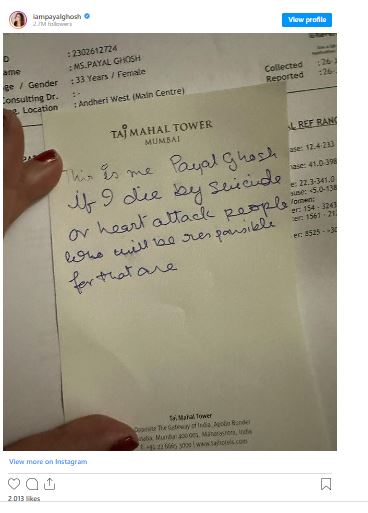 iampayalghosh
2.7M followers
View profile
: 2302612724
: MS.PAYAL GHOSH
ge / Gender : 33 Years / Female
Consulting Dr. : -
Location : Andheri West (Main Centre)
Collected : 26-
Reported : 26-
TAJ MAHAL TOWER
MUMBAI
L REF RANG
This is me Payal Ghosh
if I die by Suicide
or heart attack people
who will be responsible
for that are
ase: 12.4-233
ase: 41.0-398
e: 22.3-341.0
use: <5.0-138
omen:
er: 154 - 3243
er: 1561 - 21
er: 8525 - >30
Taj Mahal Tower
Opposite The Gateway of India, Apollo Bunder
Mumbai 400 001, Maharashtra, India
+91 22 6665 3000 / www.tajhotels.com
View more on Instagram
2,013 likes